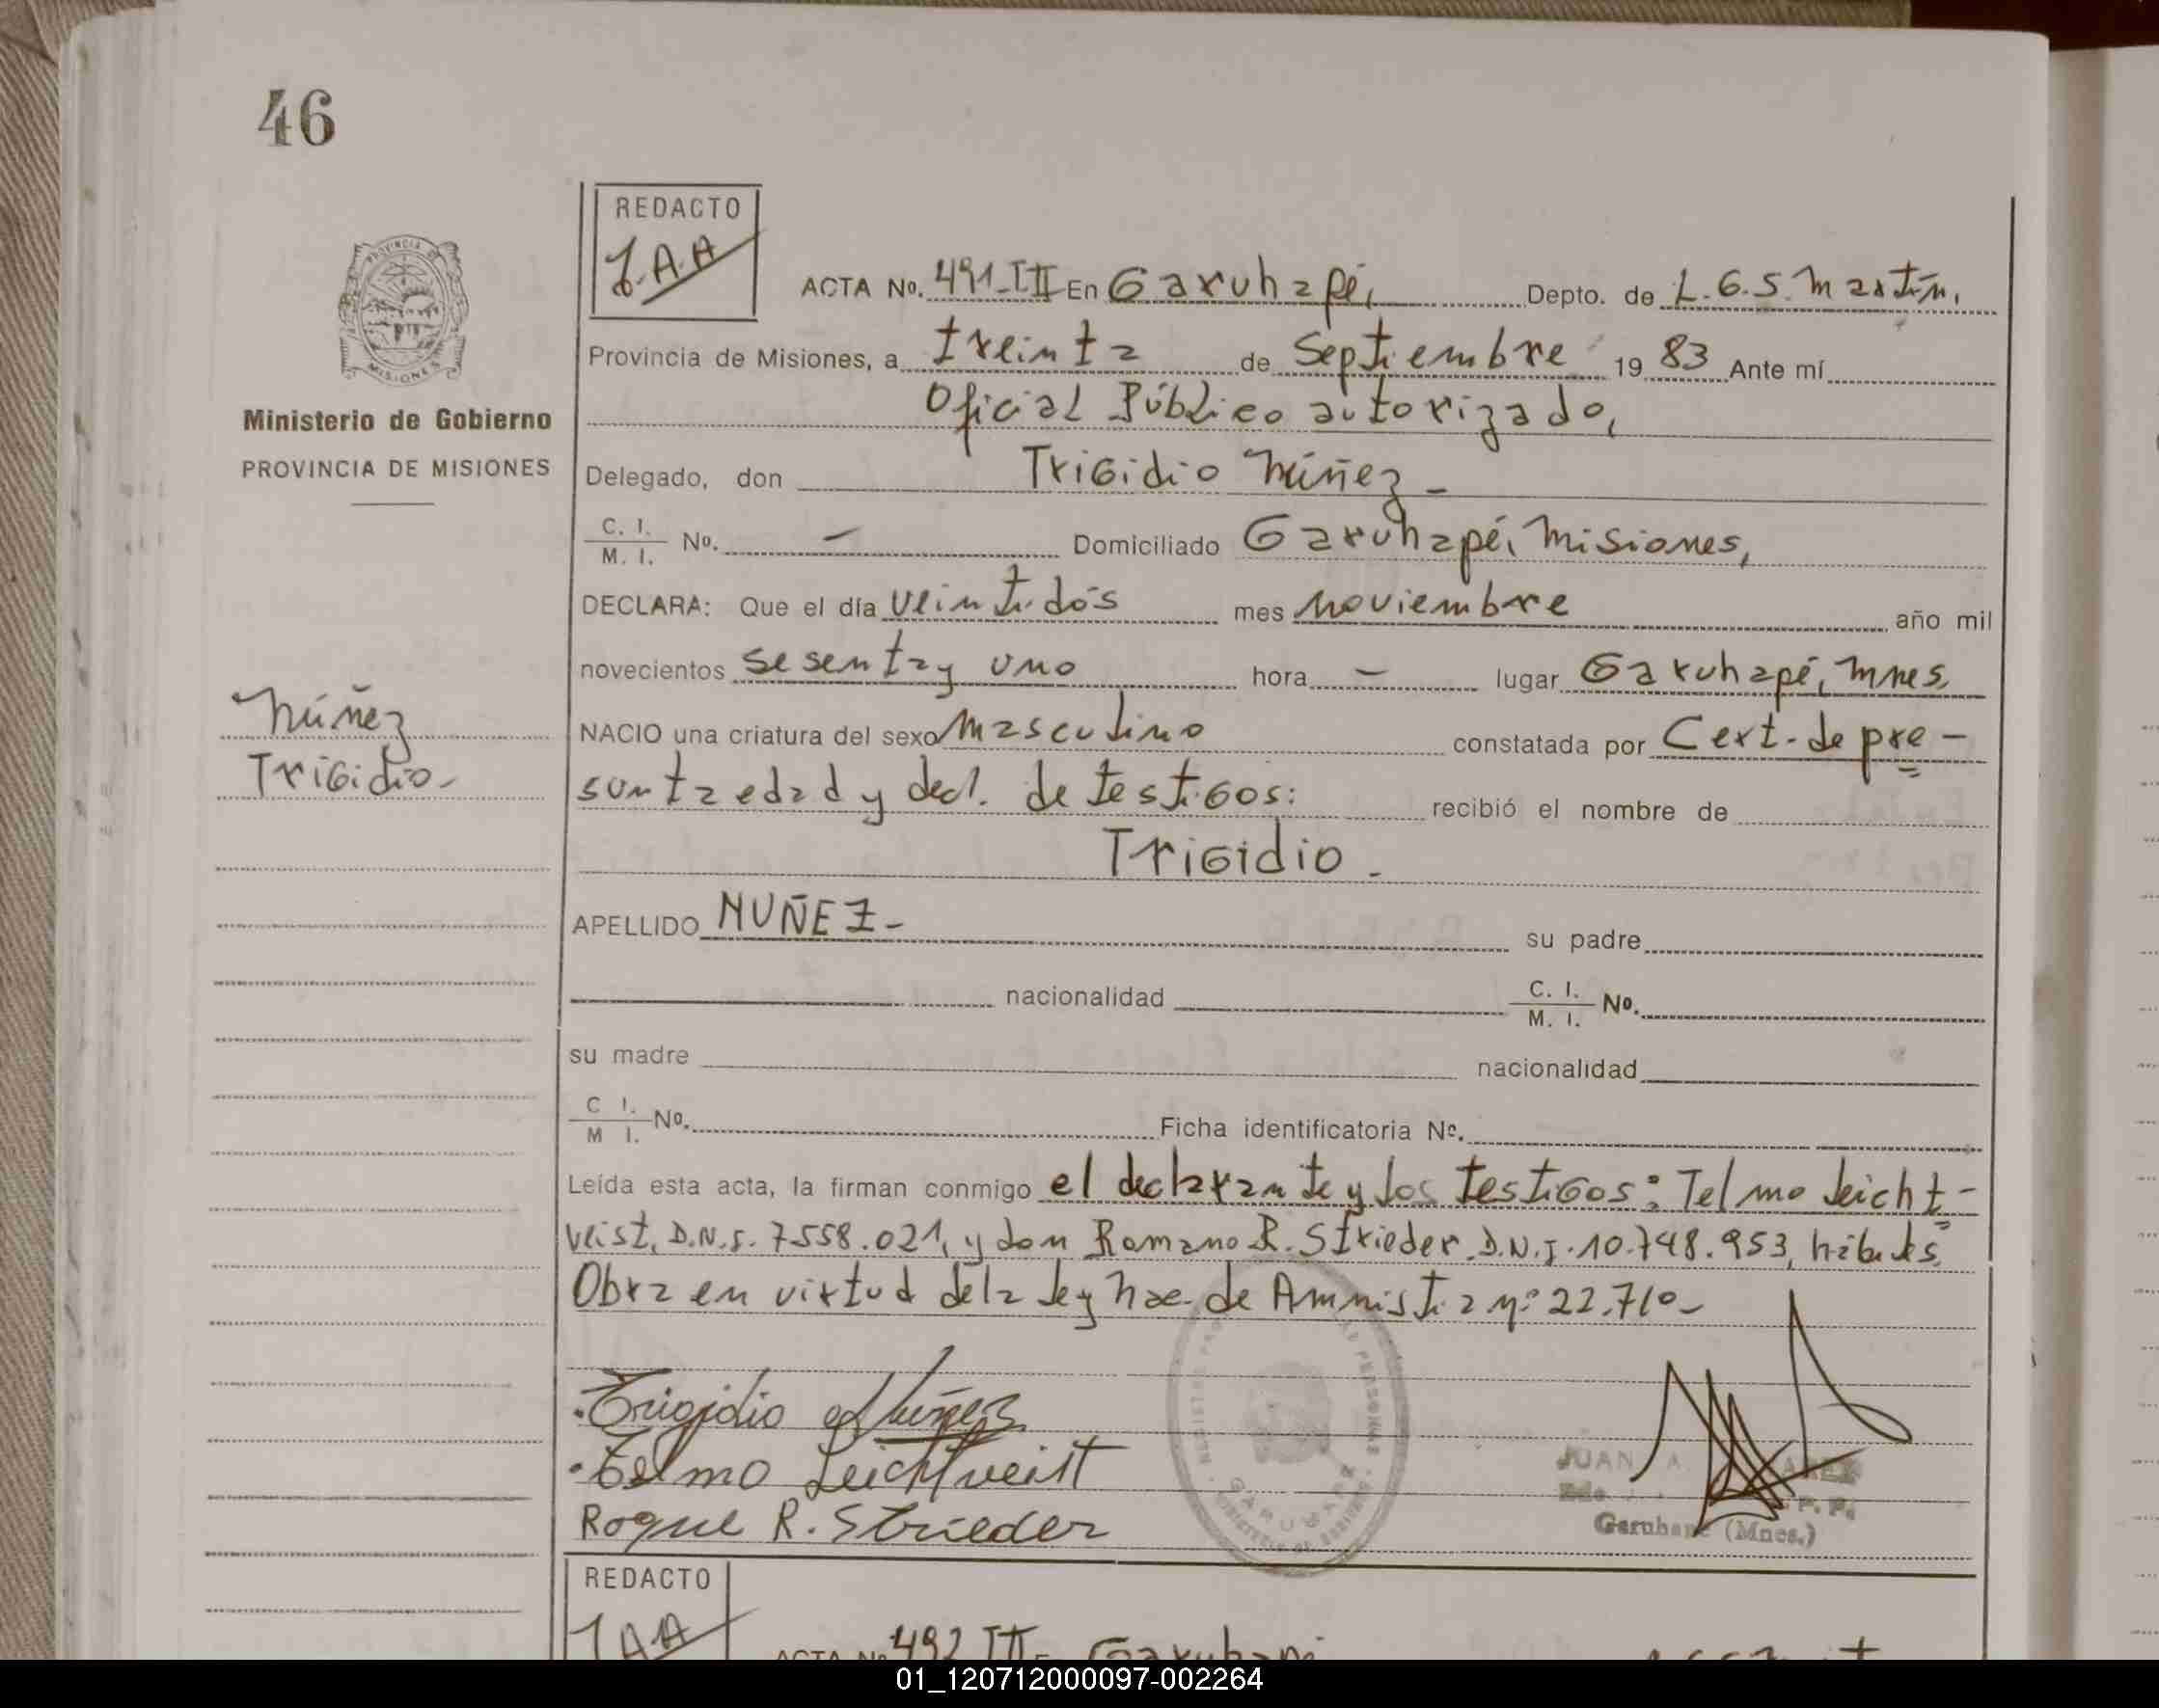 46
REDACTO
J.A.A
PROVINCIA DE
MISIONES
Ministerio de Gobierno
PROVINCIA DE MISIONES
ACTA No. 491-III En Garuhapé, Depto. de L.G.S.Martín,
Provincia de Misiones, a treinta de Septiembre 19 83 Ante mí
Oficial Público autorizado,
Delegado, don Trigidio Núñez-
C. I.
M. I. No. - Domiciliado Garuhapé, Misiones,
DECLARA: Que el día veintidós mes noviembre año mil
novecientos sesenta y uno hora - lugar Garuhapé, Mnes,
Núñez
Trigidio-
NACIO una criatura del sexo masculino constatada por Cert. de pre-
sunta edad y decl. de testigos: recibió el nombre de
Trigidio.
APELLIDO NUÑEZ- su padre
nacionalidad C. I.
M. I. No.
su madre nacionalidad
C I.
M I. No. Ficha identificatoria No.
Leída esta acta, la firman conmigo el declarante y los testigos: Telmo Leicht-
veist, D.N.I. 7558.021, y don Romano R. Strieder D.N.I. 10.748.953, hábiles
Obra en virtud de la Ley Nac. de Amnistia nº 22.710-
Trigidio Núñez
Telmo Leichtveist
Roque R. Strieder
GARUHAPE
JUAN A
P. P.
Garuhape (Mnes.)
REDACTO
JAA
ACTA No 492 III En Garuhapé
01_120712000097-002264